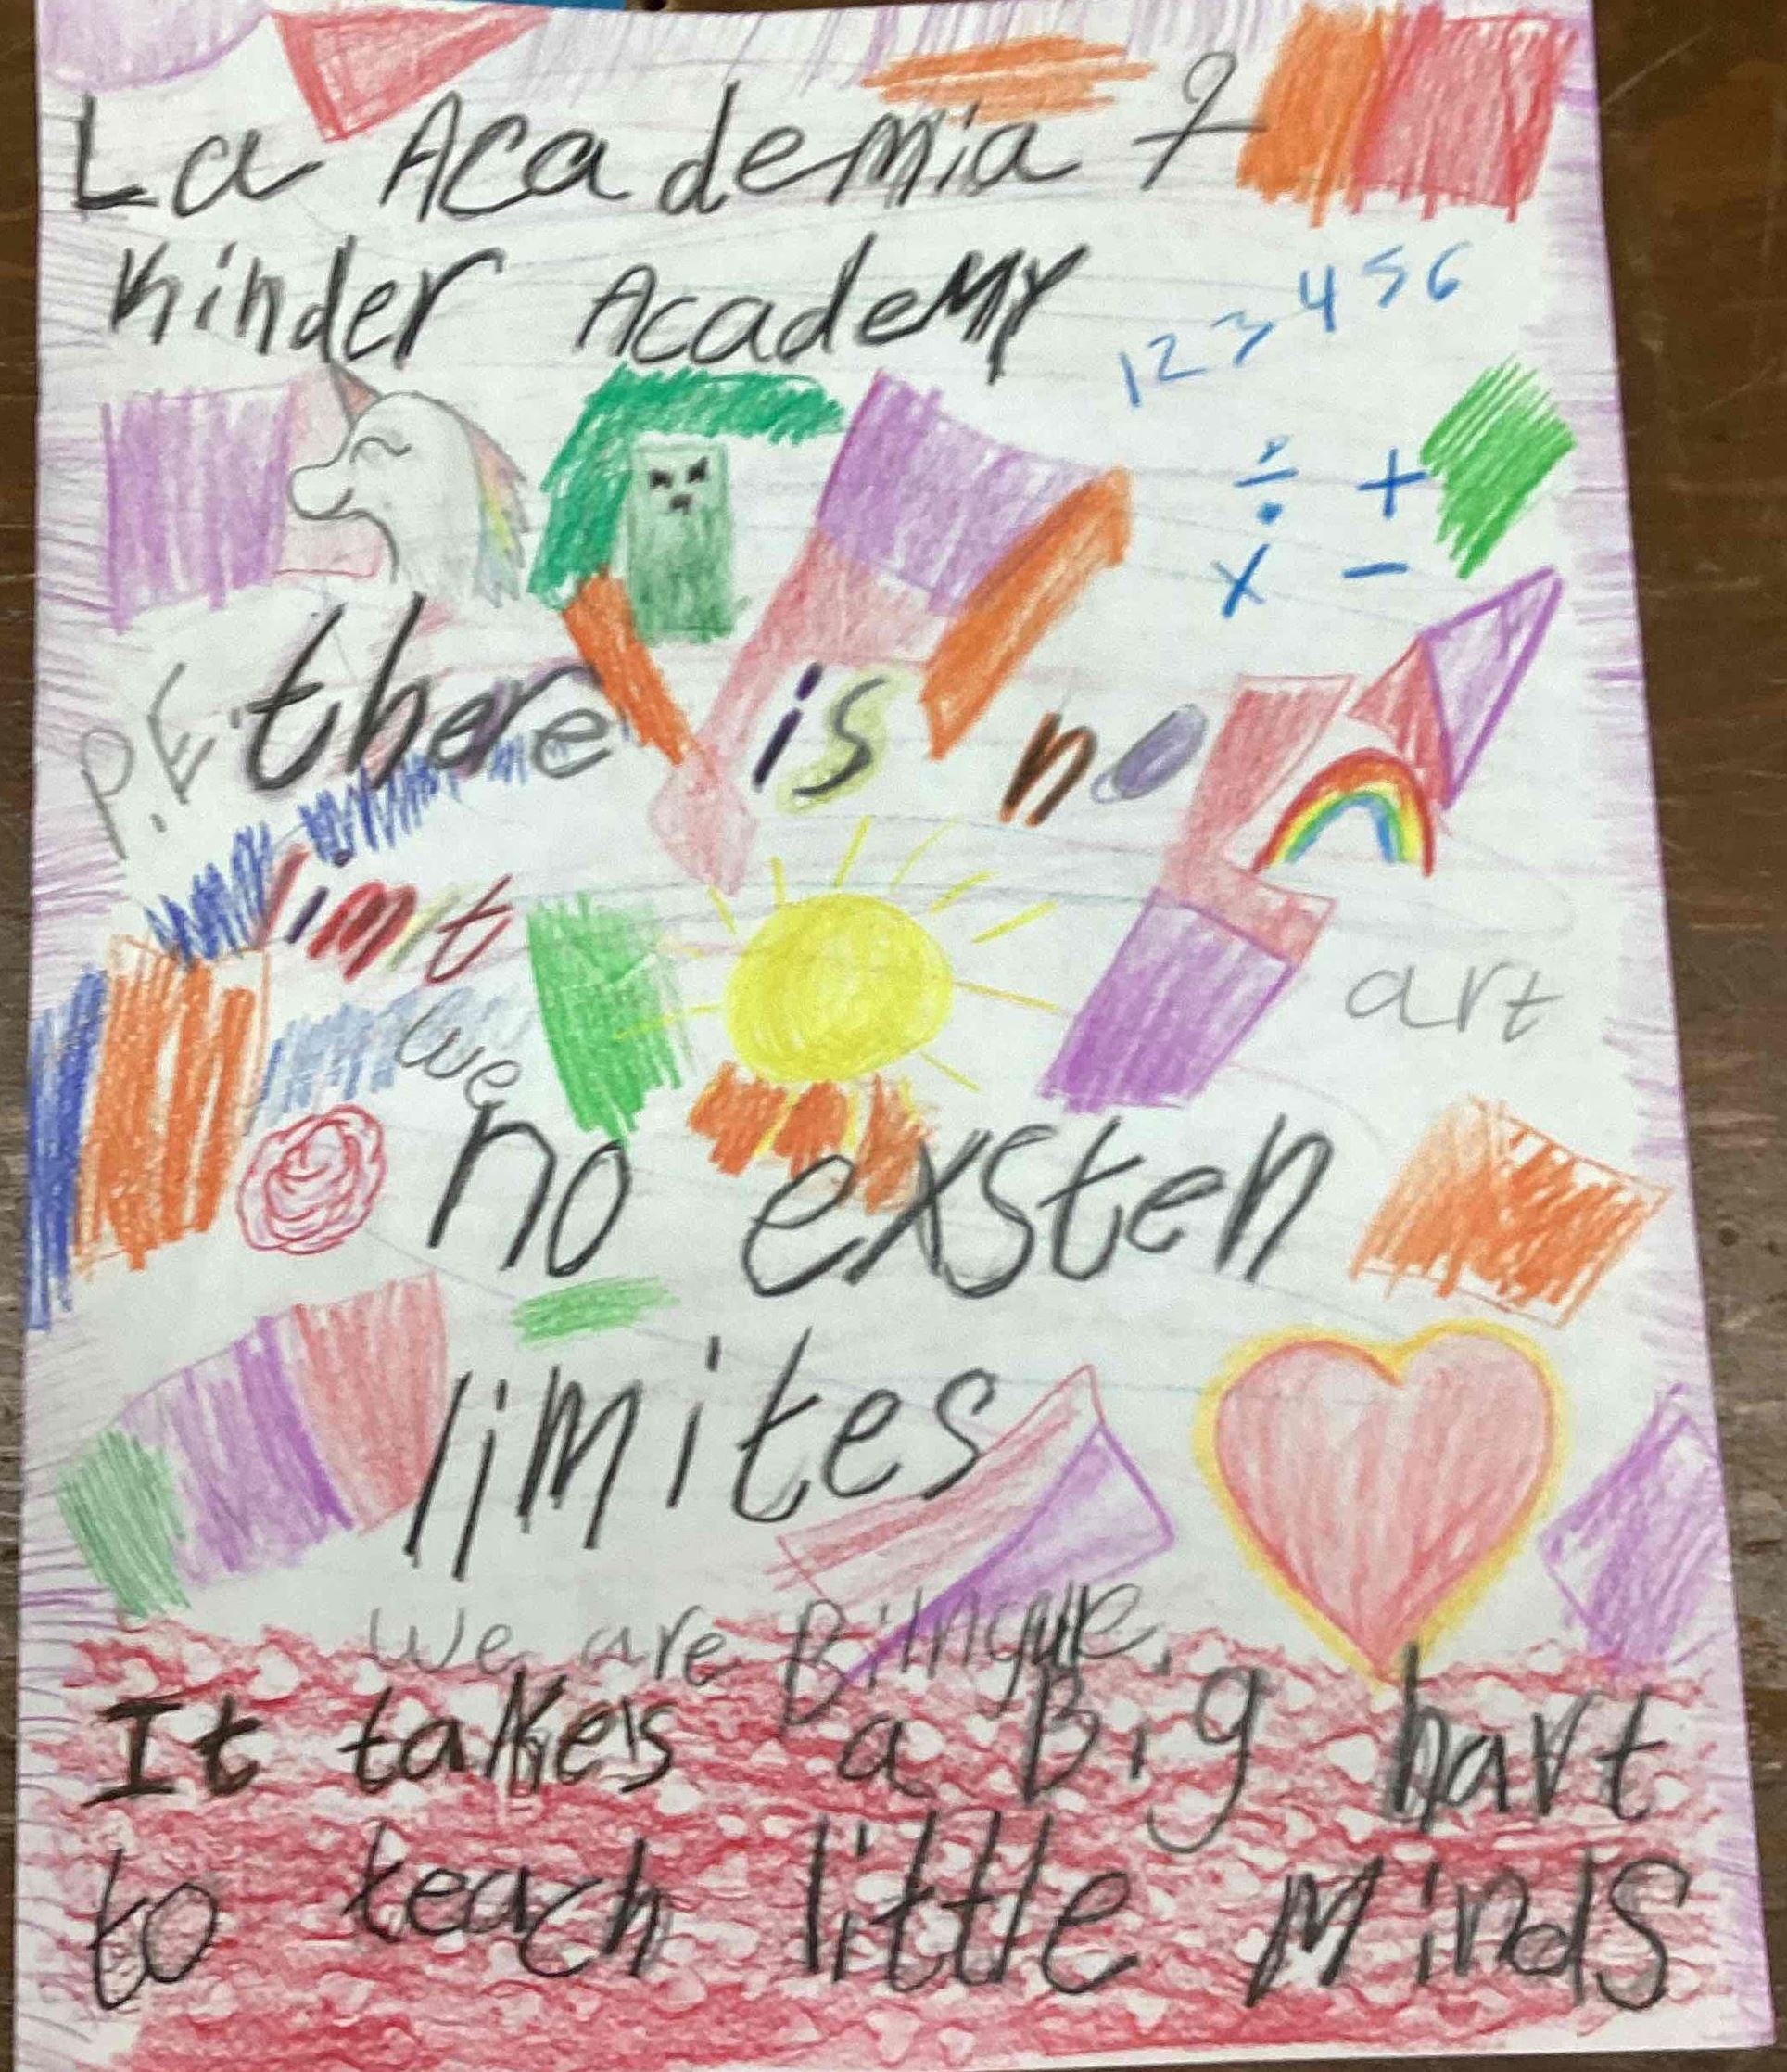 La Academia &
Kinder Academy
1 2 3 4 5 6
÷ +
x −
P.E.
there is no
limit
art
we
no existen
limites
We are Bilingue.
It takes a Big hart
to teach little minds